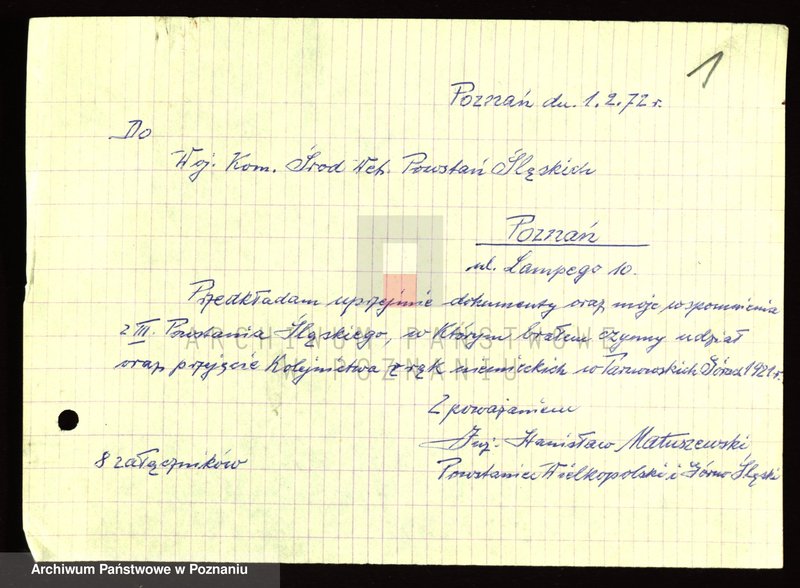 1
Poznań dn. 1.2.72 r.
Do
Woj. Kom. Środ Wet. Powstań Śląskich
Poznań
ul. Lampego 10.
Przedkładam uprzejmie dokumenty oraz moje wspomnienia
z III. Powstania Śląskiego, w którym brałem czynny udział
oraz przejęcie Kolejnictwa z rąk niemieckich w Tarnowskich Górach 1921 r.
Z poważaniem
Inż. Stanisław Matuszewski
8 załączników
Powstaniec Wielkopolski i Górno Śląski
ARCHIWUM PAŃSTWOWE
W POZNANIU
Archiwum Państwowe w Poznaniu